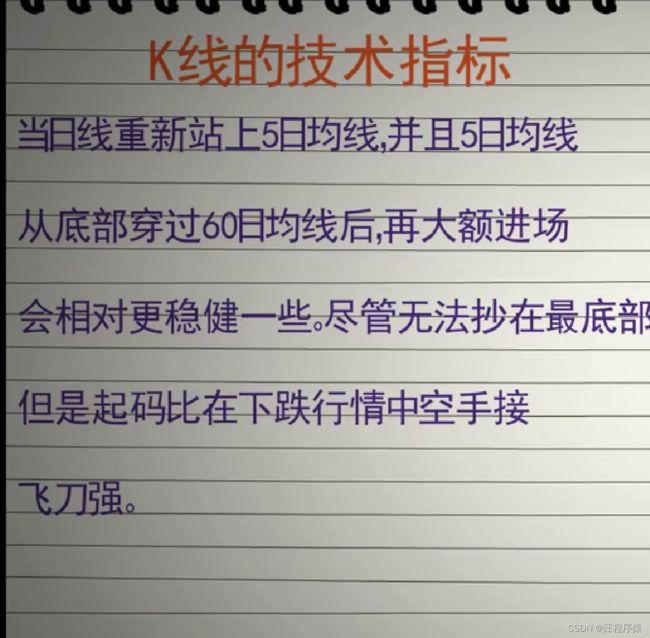 K线的技术指标
当日线重新站上5日均线,并且5日均线
从底部穿过60日均线后,再大额进场
会相对更稳健一些。尽管无法抄在最底部
但是起码比在下跌行情中空手接
飞刀强。
CSDN @汪程序猿